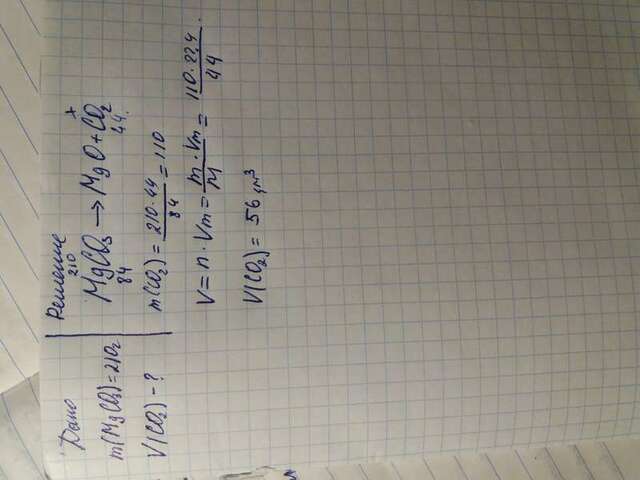 Дано
m(MgCO3)=210г
V(CO2)-?
Решение
210 x
MgCO3 → MgO + CO2
84 44.
m(CO2) = 210·44 / 84 = 110
V = n·Vm = m·Vm / M = 110·22,4 / 44.
V(CO2) = 56 дм³